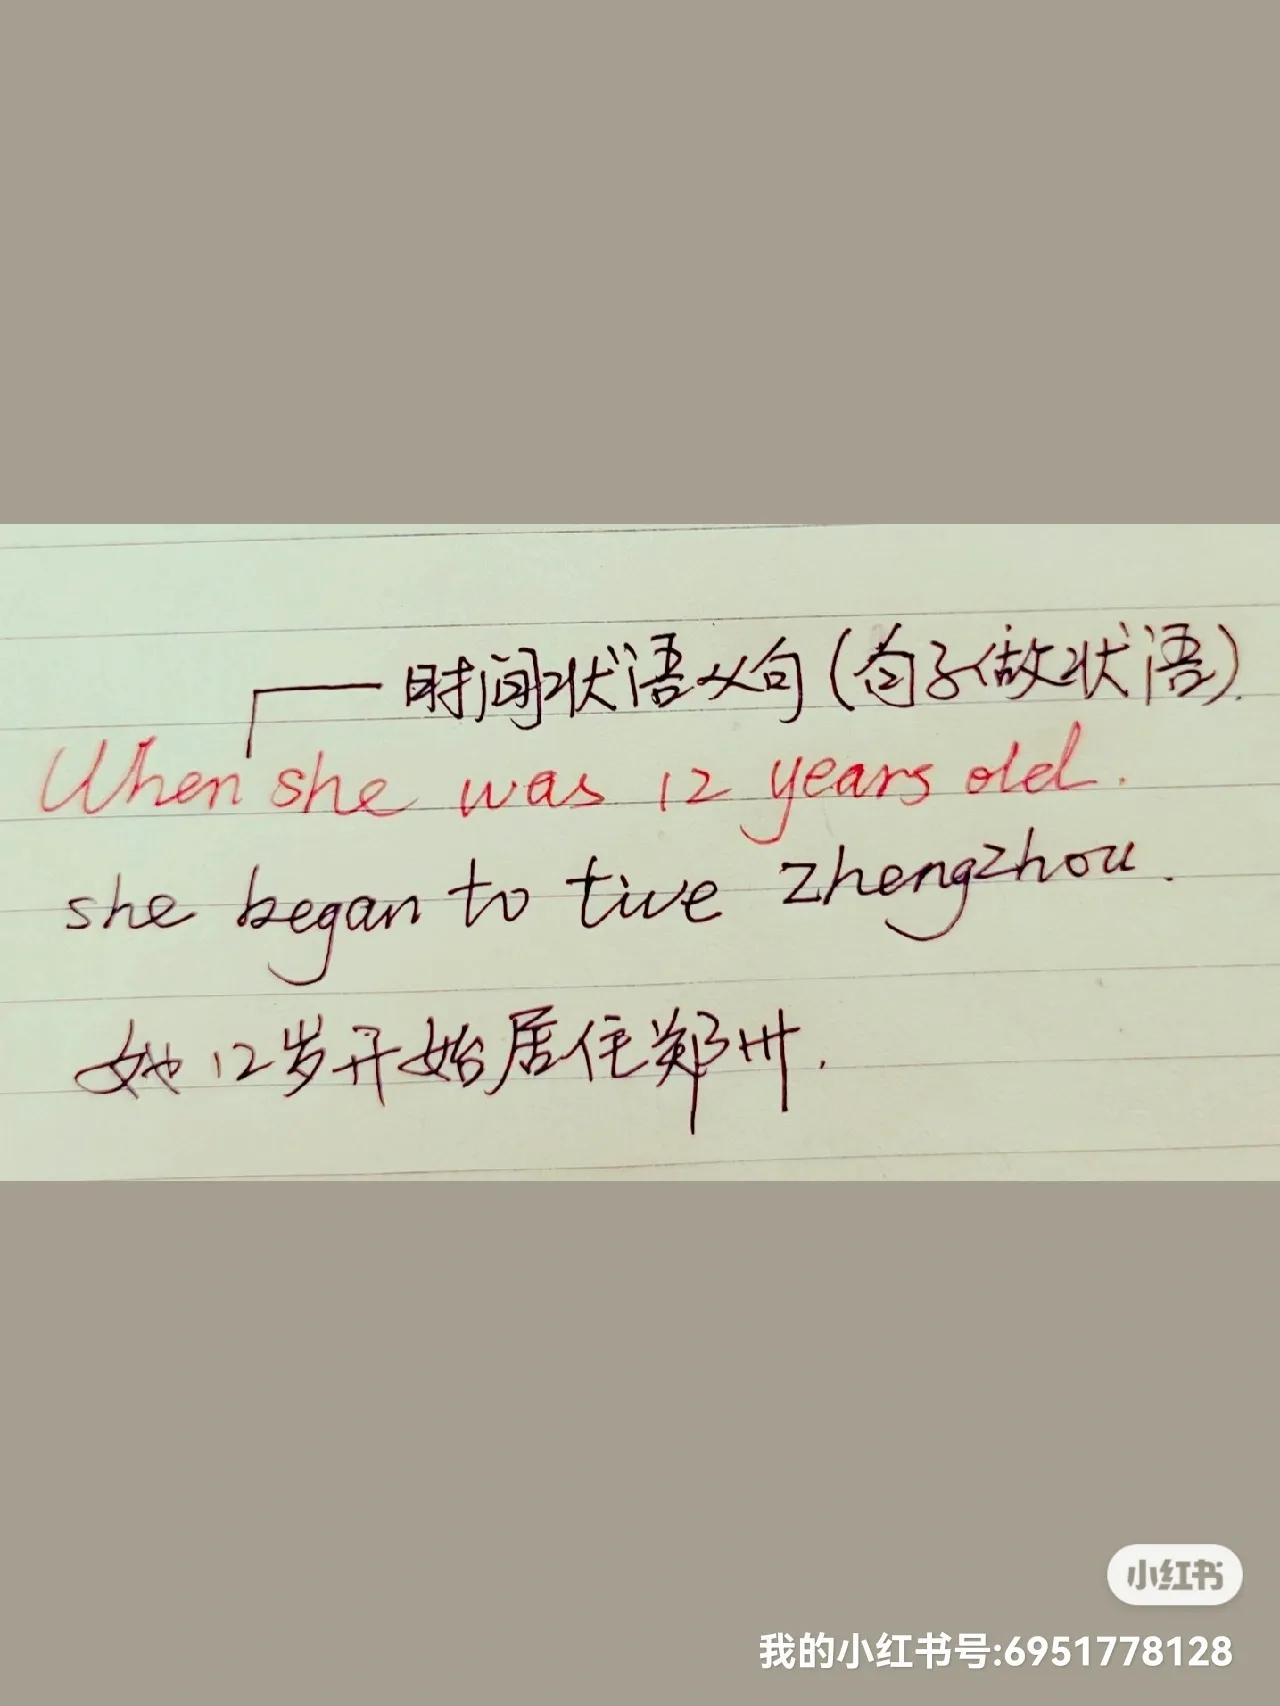 时间状语从句(句子做状语).
When she was 12 years old.
she began to tive zhengzhou.
她12岁开始居住郑州.
小红书
我的小红书号:6951778128